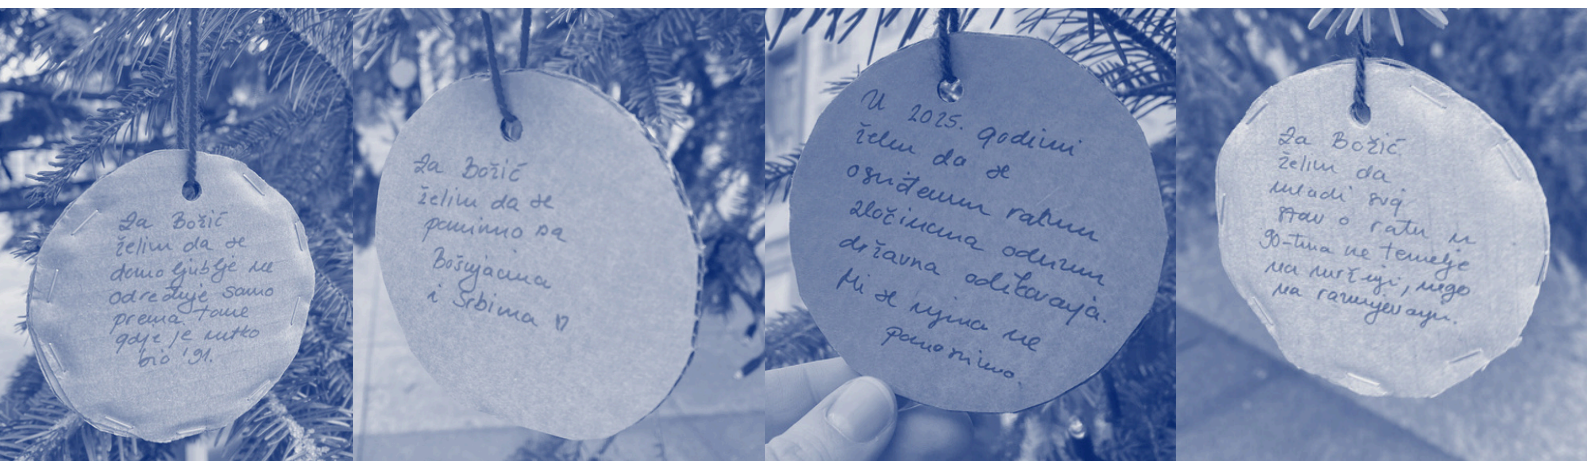 Za Božić
želim da se
domoljublje ne
određuje samo
prema tome
gdje je netko
bio '91.
Za Božić
želim da se
pomirimo sa
Bošnjacima
i Srbima ♡
U 2025. godini
želim da se
osuđenim ratnim
zločincima oduzmu
državna odlikovanja.
Mi se njima ne
ponosimo.
Za Božić
želim da
mladi svoj
stav o ratu u
90-tima ne temelje
na mržnji, nego
na razumijevanju.